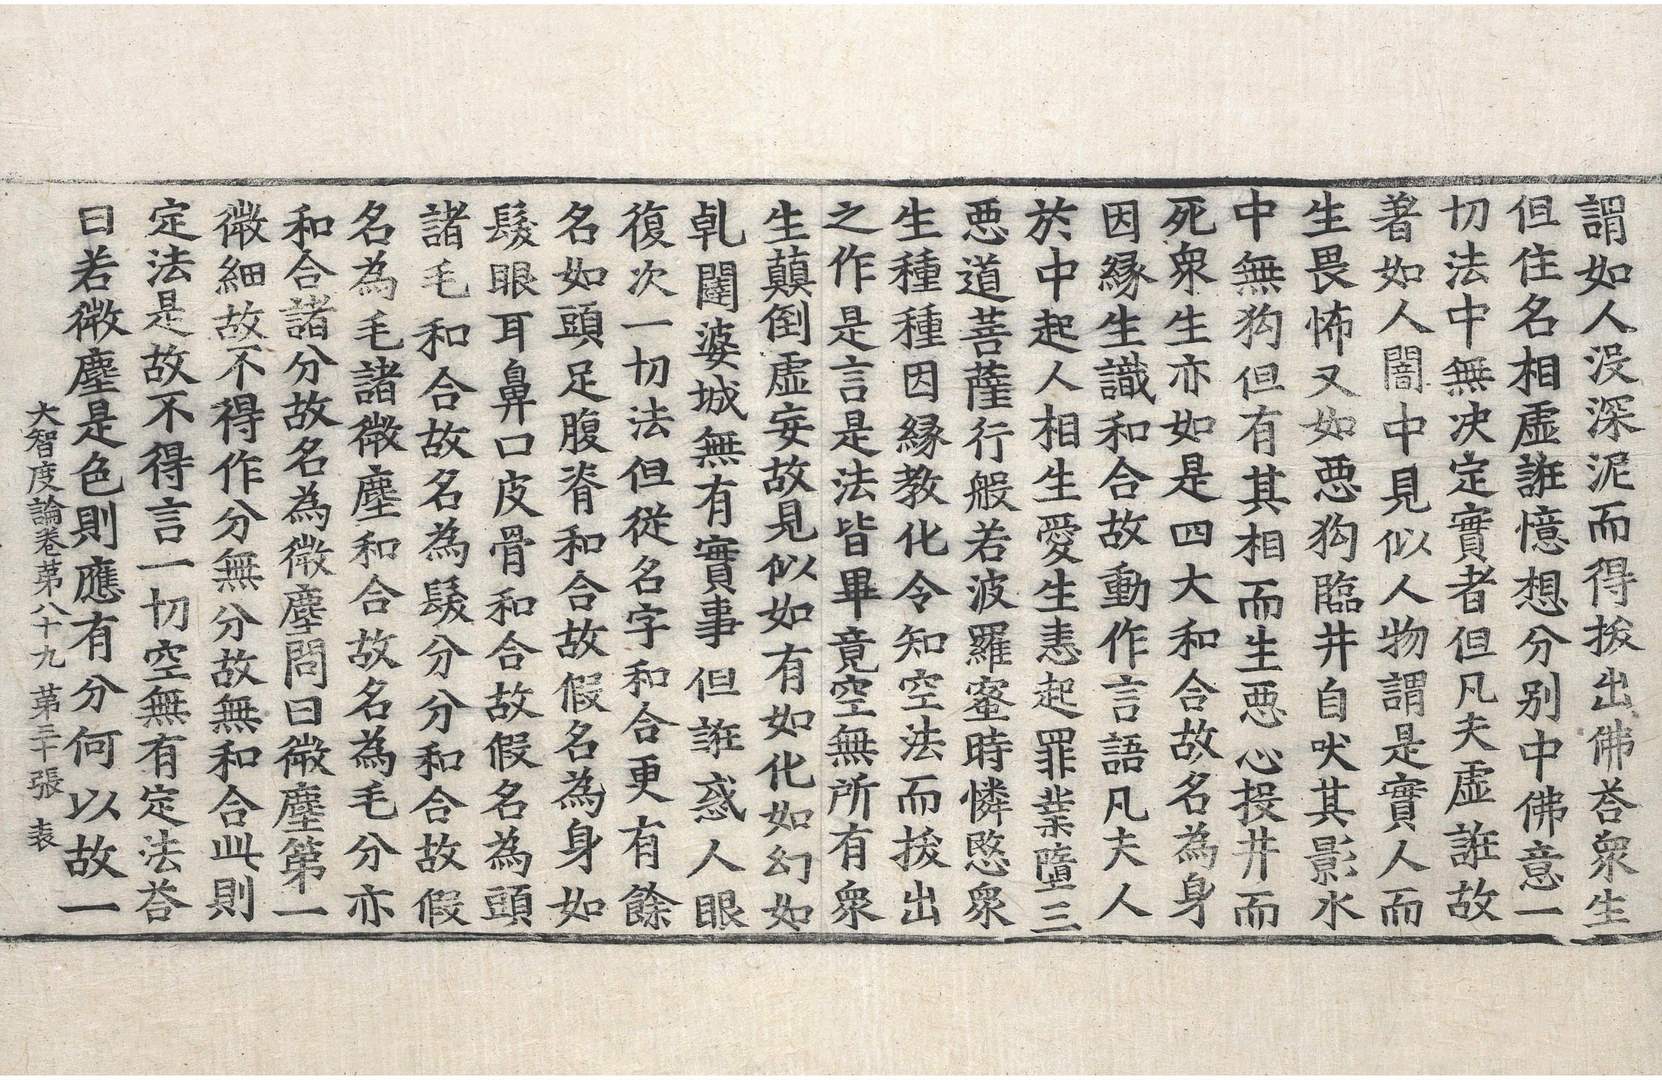 謂如人没深泥而得拔出佛荅衆生
但住名相虛誑憶想分别中佛意一
切法中無决定實者但凡夫虛誑故
著如人闇中見似人物謂是實人而
生畏怖又如惡狗臨井自吠其影水
中無狗但有其相而生惡心投井而
死衆生亦如是四大和合故名為身
因緣生識和合故動作言語凡夫人
於中起人相生愛生恚起罪業墮三
惡道菩薩行般若波羅蜜時憐愍衆
生種種因緣教化令知空法而拔出
之作是言是法皆畢竟空無所有衆
生顚倒虛妄故見似如有如化如幻如
乹闥婆城無有實事但誑惑人眼
復次一切法但從名字和合更有餘
名如頭足腹脊和合故假名為身如
髮眼耳鼻口皮骨和合故假名為頭
諸毛和合故名為髮分分和合故假
名為毛諸微塵和合故名為毛分亦
和合諸分故名為微塵問曰微塵第一
微細故不得作分無分故無和合此則
定法是故不得言一切空無有定法荅
曰若微塵是色則應有分何以故一
大智度論卷第八十九 第三十張 表